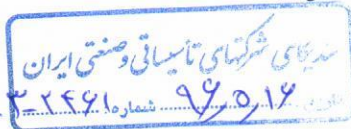 سندیکای شرکتهای تأسیساتی و صنعتی ایران
۹۶٫۵٫۱۶ شماره ۳-۲۴۶۹۱